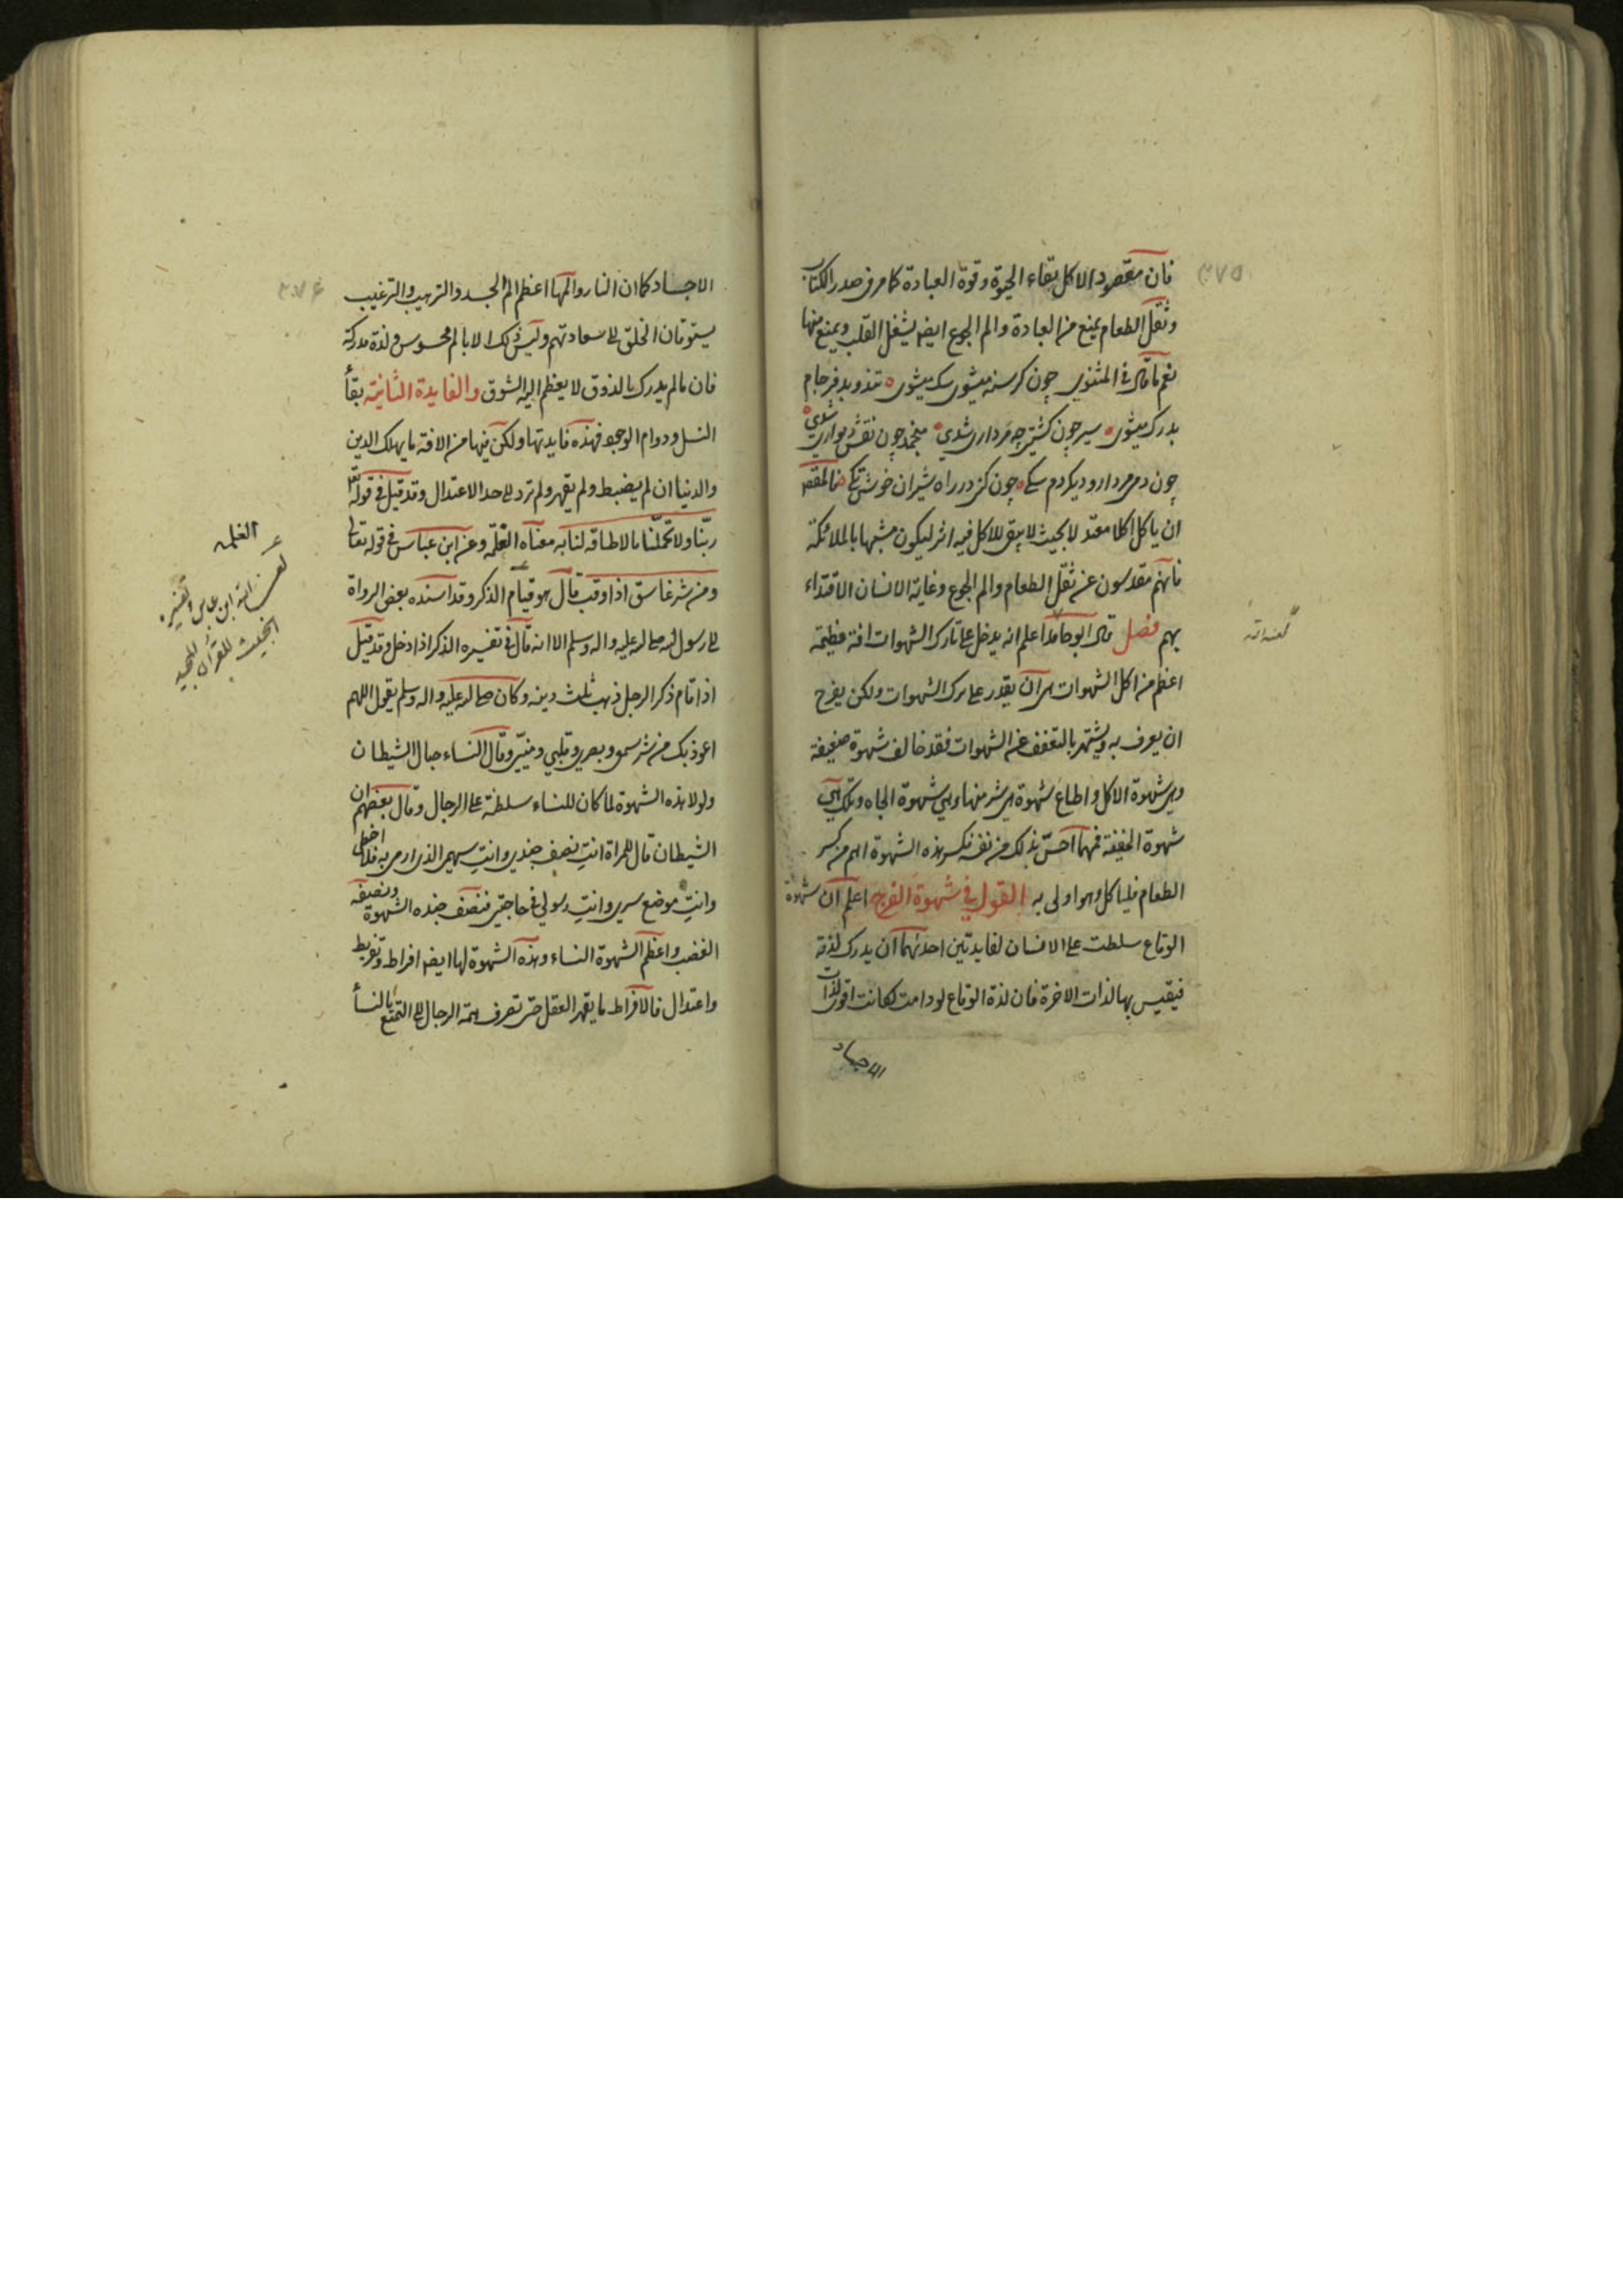 فان مقصود الاكل بقاء الحيوة وقوة العبادة كما مر فى صدر الكتاب
وثقل الطعام يمنع من العبادة والم الجوع ايضا يشغل القلب ويمنع منها
نعم ما قال فى المثنوى چون كرسنه ميشوى سك ميشوى تند وبد فرجام
بدرك ميشوى سير چون كشتى چه مردارى شدى بيخمد چون نقش ديوارى شدى
چون دمى مردار و ديكر دم سكى چون كنى در راه شيران خوش تكى فالمقصد
ان ياكل اكلا معتدلا بحيث لا يبقى للاكل فيه اثر ليكون متشبها بالملائكة
فانهم مقدسون عن ثقل الطعام والم الجوع وغاية الانسان الاقتداء
بهم فصل قال ابو حامد اعلم انه يدخل على تارك الشهوات افة عظيمة
اعظم من اكل الشهوات هى ان يقدر على ترك الشهوات ولكن يفرح
ان يعرف به ويشتهر بالتعفف عن الشهوات فقد خالف شهوة ضعيفة
وهى شهوة الاكل واطاع شهوة هى شر منها وهى شهوة الجاه وتلك هى
شهوة الخفية فمهما احس بذلك من نفسه فكسر هذه الشهوة اهم من كسر
الطعام فلياكل وهو اولى به القول فى شهوة الفرج اعلم ان شهوة
الوقاع سلطت على الانسان لفايدتين احدهما ان يدرك لذته
فيقيس بها لذات الاخرة فان لذة الوقاع لو دامت لكانت اقوى لذات
الاجساد
٣٧٥
الاجساد كما ان النار والمها اعظم الم الجسد والترهيب والترغيب
يسوقان الخلق الى سعادتهم وليس ذلك الا بالم محسوس ولذة مدركة
فان ما لم يدرك بالذوق لا يعظم اليه الشوق والفايدة الثانية بقأ
النسل ودوام الوجود فهذه فايدتها ولكن فيها من الافة ما يهلك الدين
والدنيا ان لم يضبط ولم يقهر ولم ترد الى حد الاعتدال وقد قيل فى قوله تعالى
ربنا ولا تحملنا ما لا طاقة لنا به معناه الغلمه وعن ابن عباس فى قوله تعالى
ومن شر غاسق اذا وقب قال هو قيام الذكر وقد اسنده بعض الرواة
الى رسول الله صلى الله عليه واله وسلم الا انه قال فى تفسيره الذكر اذا دخل وقد قيل
اذا قام ذكر الرجل ذهب ثلث دينه وكان صلى الله عليه واله وسلم يقول اللهم
اعوذ بك من شر سمعى وبصرى وقلبى ومنيى وقال النساء حبال الشيطان
ولولا هذه الشهوة لما كان للنساء سلطنة على الرجال وقال بعضهم ان
الشيطان قال للمراة انتِ نصف جندى وانتِ سهمى الذى ارمى به فلا اخطى
وانتِ موضع سرى وانتِ رسولى فى حاجتى فنصف جنده الشهوة ونصفه
الغضب واعظم الشهوة النساء وهذه الشهوة لها ايضا افراط وتفريط
واعتدال فالافراط ما يقهر العقل حتى تصرف همة الرجال الى التمتع بالنسأ
٣٧٦
الغلمه